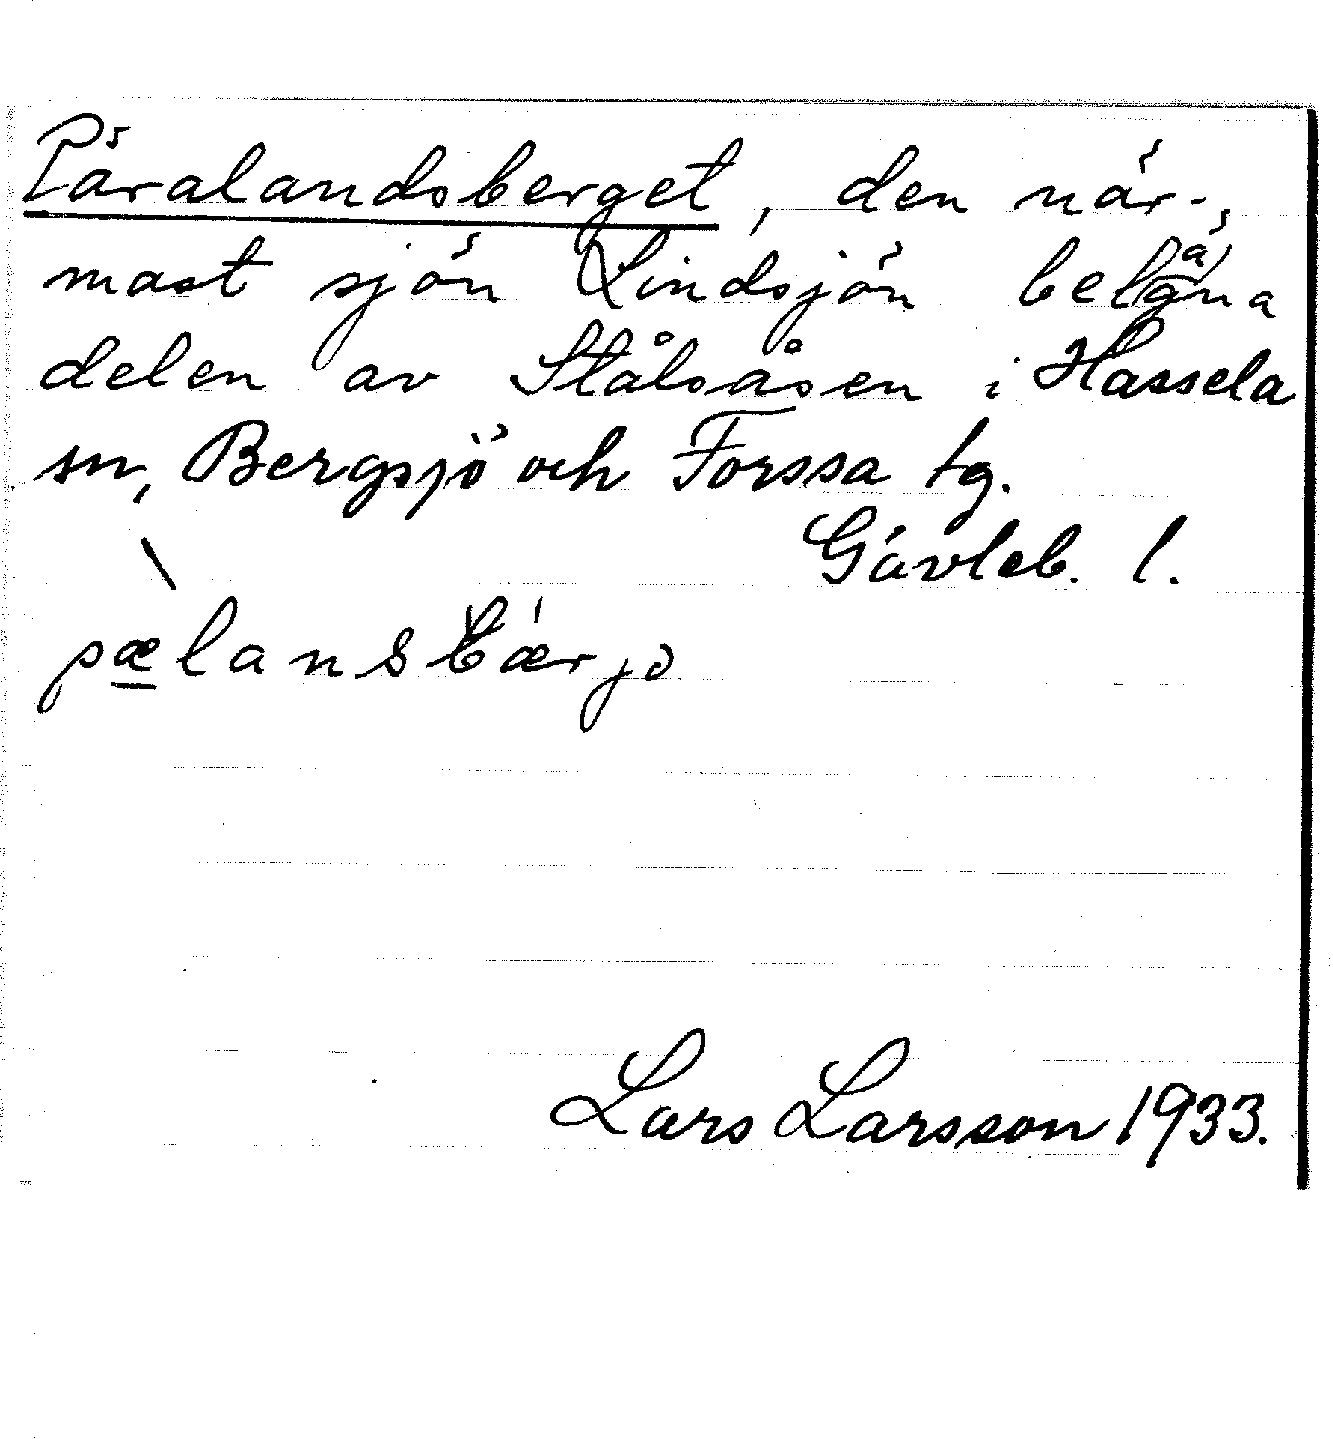 Päralandsberget, den när-
mast sjön Lindsjön belägna
delen av Stålsåsen i Hassela
sn, Bergsjö och Forssa tg.
Gävleb. l.
pælansbærjə
Lars Larsson 1933.